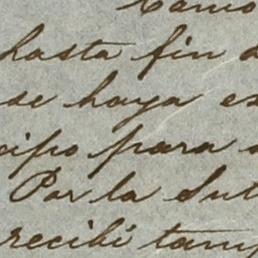 hasta fin
se haya es
cipo para
Por la Sut
recibí tam